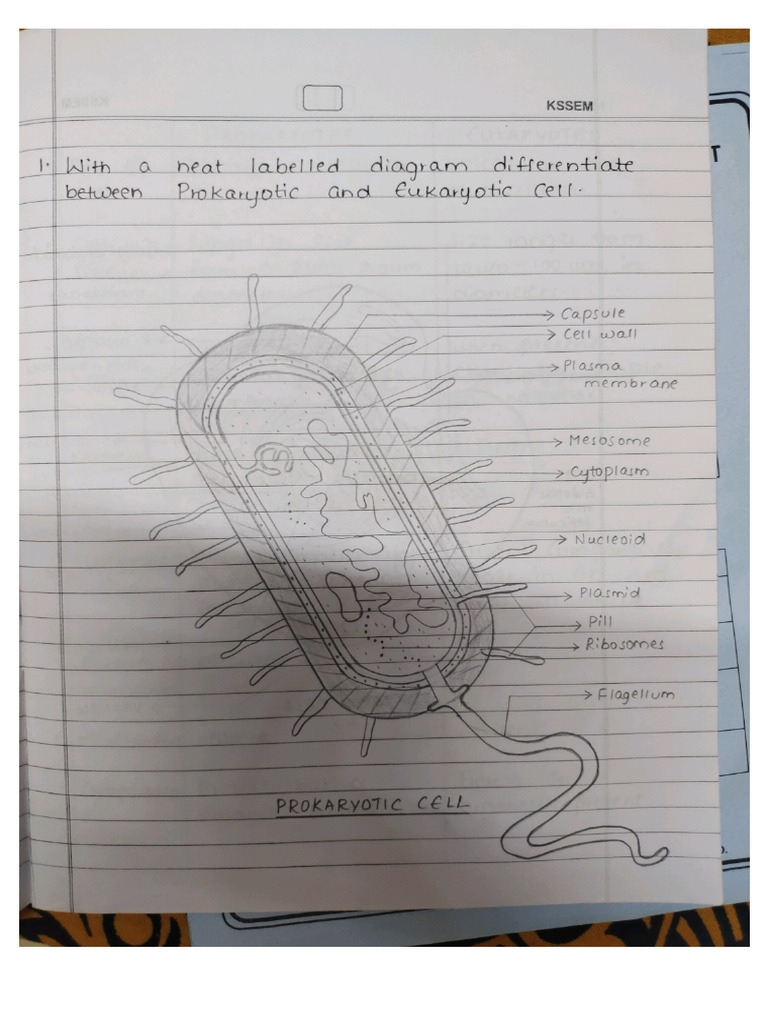 KSSEM
1. With a neat labelled diagram differentiate
between Prokaryotic and Eukaryotic Cell.
Capsule
Cell wall
Plasma
membrane
Mesosome
Cytoplasm
Nucleoid
Plasmid
Pili
Ribosomes
Flagellum
PROKARYOTIC CELL